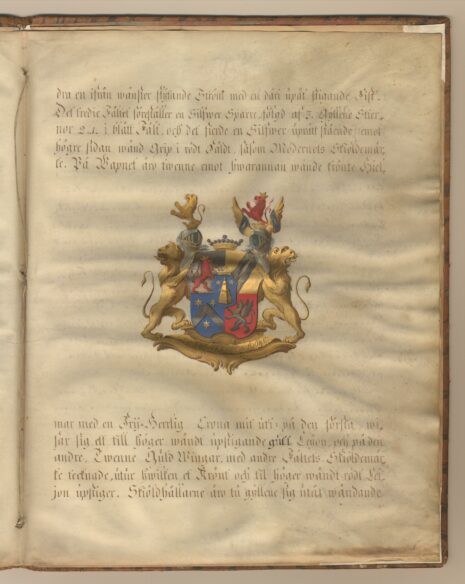 dra en ifrån wänster flytande Ström med en däri upåt stigande Fisk.
Det tredie Fältet föreställer en Silfwer Sparre, fölgd af 3. Gyllene Stier-
nor 2.1. i blått Fält, och det fierde en Silfwer uprätt stående emot
högre sidan wänd Grip i rödt Fäldt, såsom Modernets Skiöldemär-
ke. På Wapnet äro twenne emot hwarannan wände krönte Hiel,
mar med en Frij-Herrlig Crona mitt uti, på den första wi-
sar sig ett till höger wändt upstigande gull Leijon, och på den
andre, Twenne Guld Wingar, med andre Fältets Skiöldemär,
ke tecknade, utur hwilken et Krönt och til höger wändt rödt Lei-
jon upstiger. Skiöldhållarne äro tu gyllene sig wändande